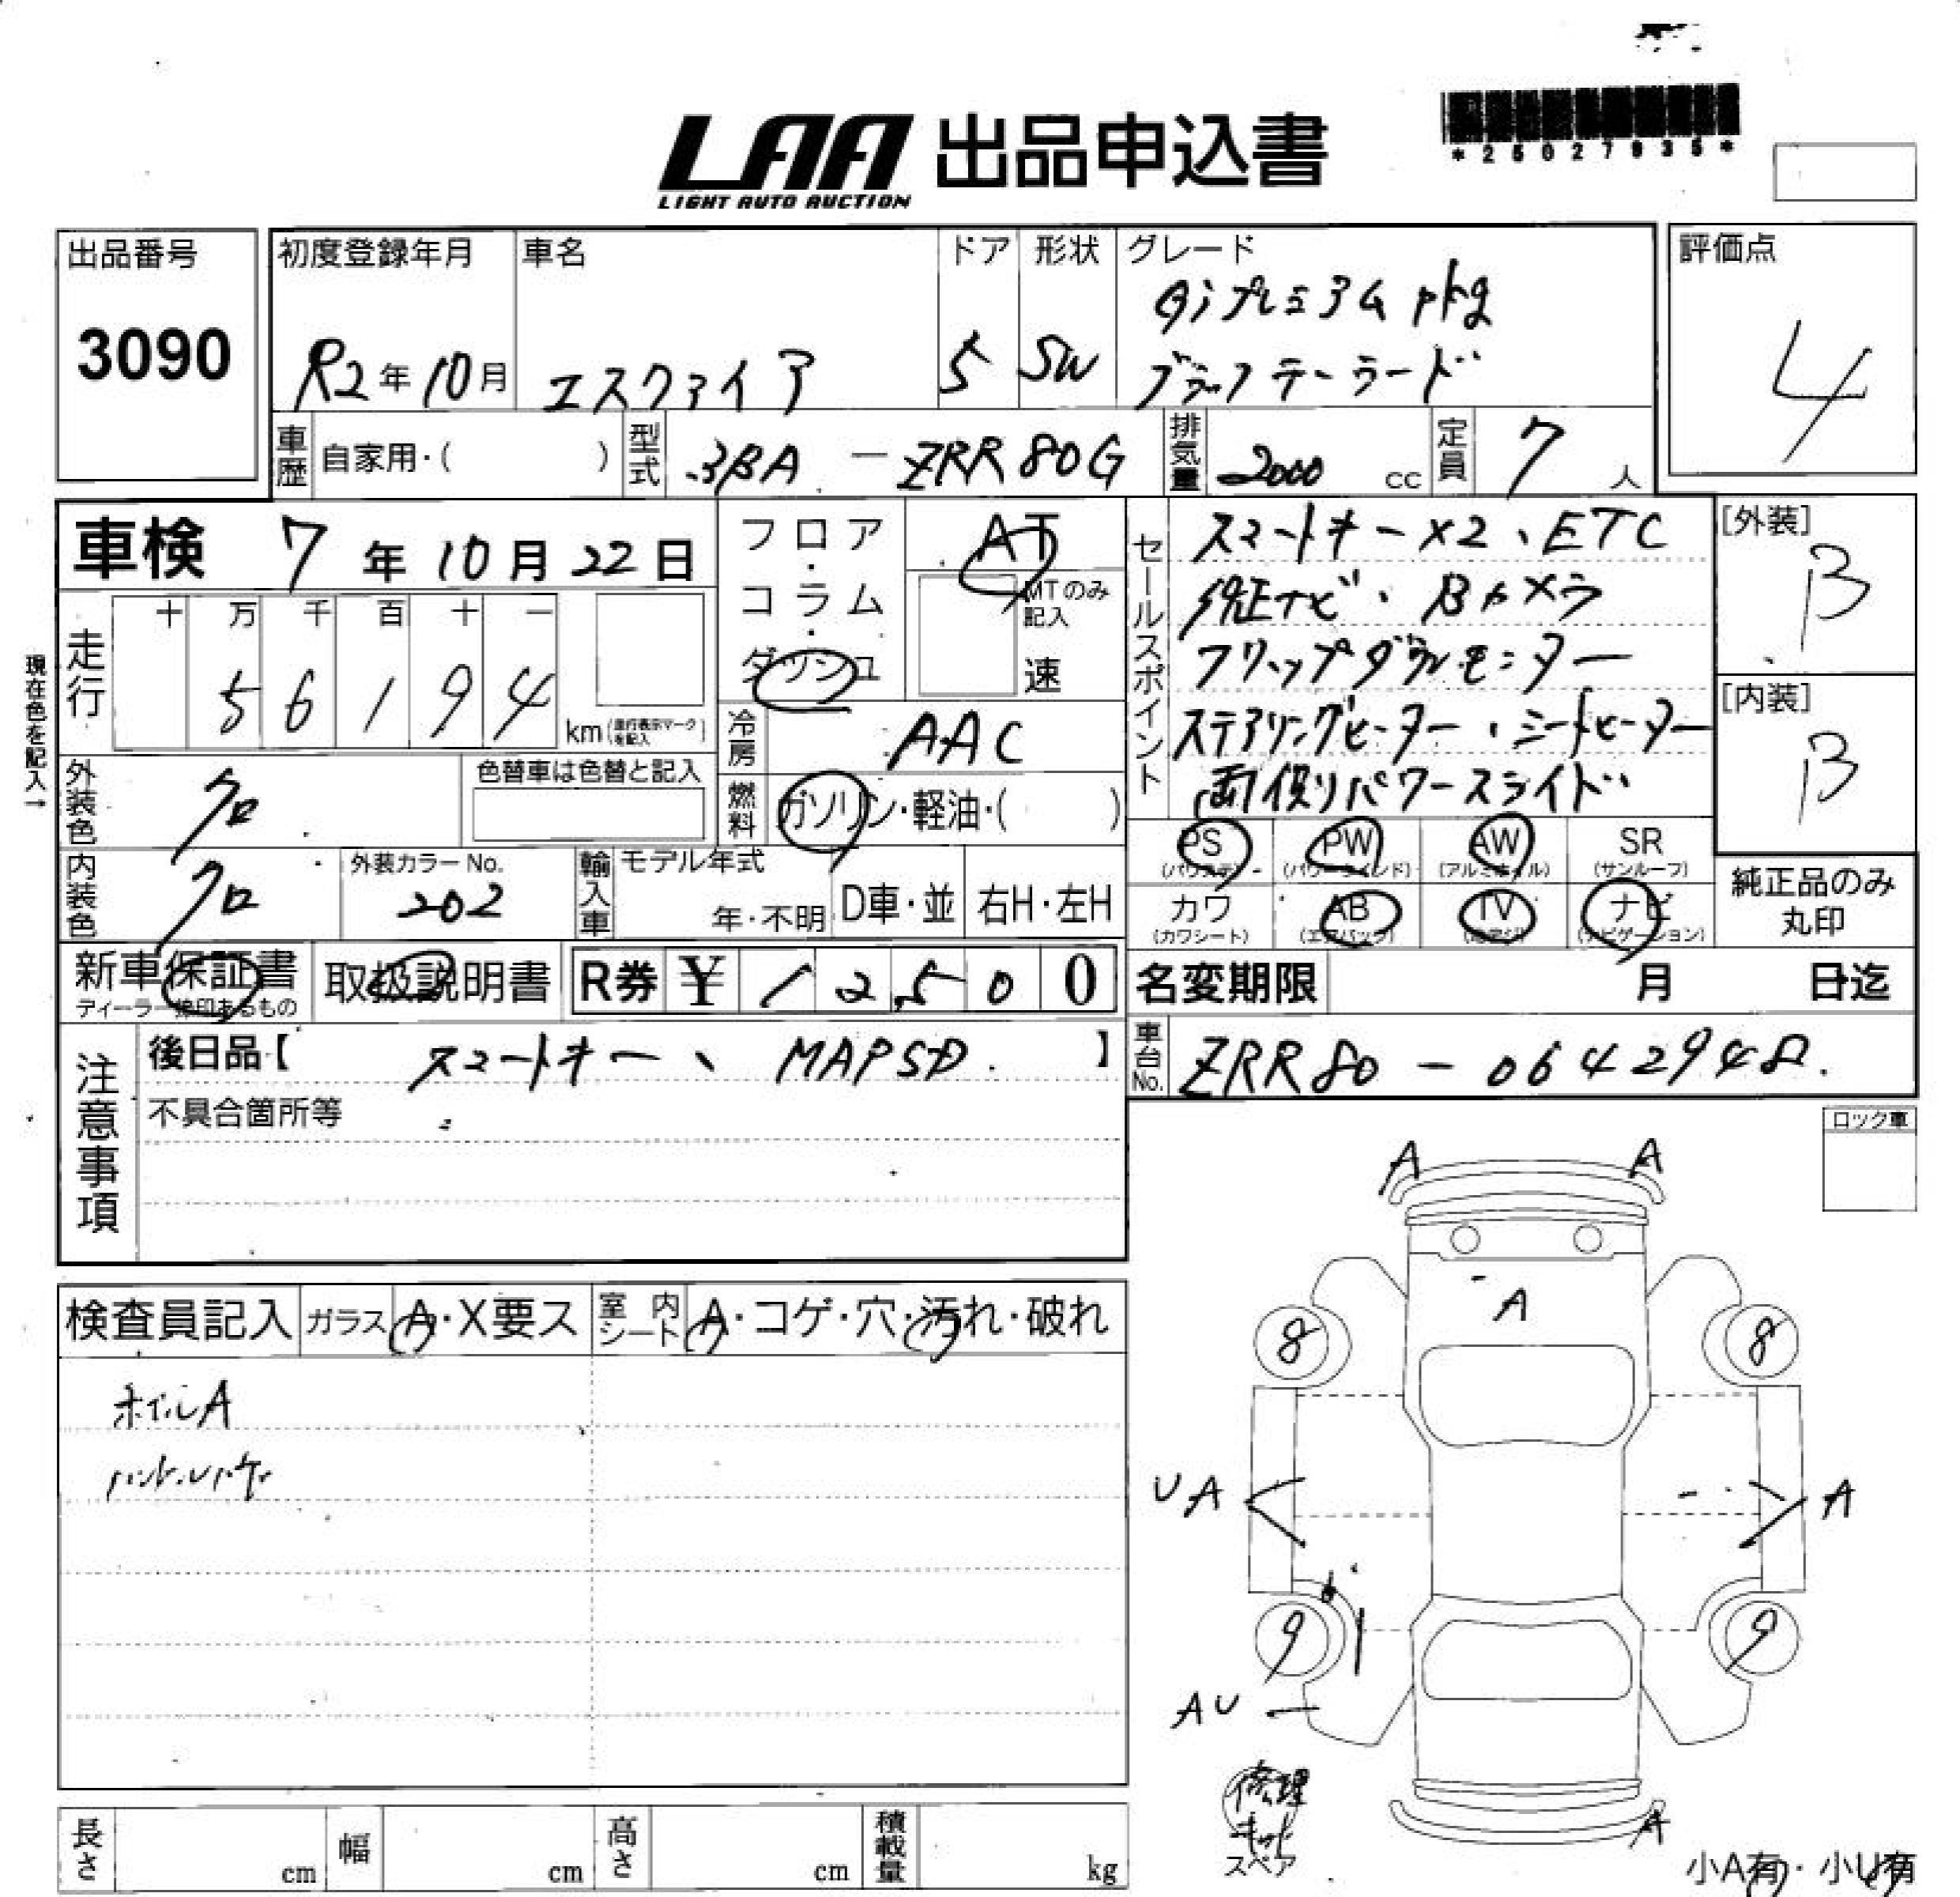 LAA 出品申込書
LIGHT AUTO AUCTION
*25027935*
出品番号 3090
初度登録年月 R2年10月
車名 エスクァイア
ドア 5
形状 SW
グレード Giプレミアムpkg
ブラックテーラード
評価点 4
車歴 自家用・( )
型式 3BA-ZRR80G
排気量 2000 cc
定員 7 人
車検 7年10月22日
フロア・コラム・ダッシュ
AT
MTのみ記入
速
セールスポイント
スマートキー×2、ETC
純正ナビ、Bカメラ
フリップダウンモニター
ステアリングヒーター、シートヒーター
両側パワースライド
[外装] B
[内装] B
現在色を記入→
走行 十 万 千 百 十 一
5 6 1 9 4
km(走行表示マークを記入)
冷房 AAC
燃料 ガソリン・軽油・( )
外装色 クロ
色替車は色替と記入
内装色 クロ
外装カラーNo. 202
輸入車 モデル年式
年・不明 D車・並 右H・左H
PS (パワステ) PW (パワーウインド) AW (アルミホイル) SR (サンルーフ)
カワ (カワシート) AB (エアバッグ) TV (地デジ) ナビ (ナビゲーション)
純正品のみ丸印
新車保証書
ディーラー捺印あるもの
取扱説明書
R券 ¥ 1 2 5 0 0
名変期限 月 日迄
注意事項
後日品【 スマートキー、MAPSD. 】
不具合箇所等
車台No. ZRR80-0642948.
ロック車
検査員記入 ガラス A・X要ス 室内シート A・コゲ・穴・汚れ・破れ
ホイルA
A A
A
8 8
UA A
9 9
AU
A
修理キット
スペア
小A有・小U有
長さ cm 幅 cm 高さ cm 積載量 kg